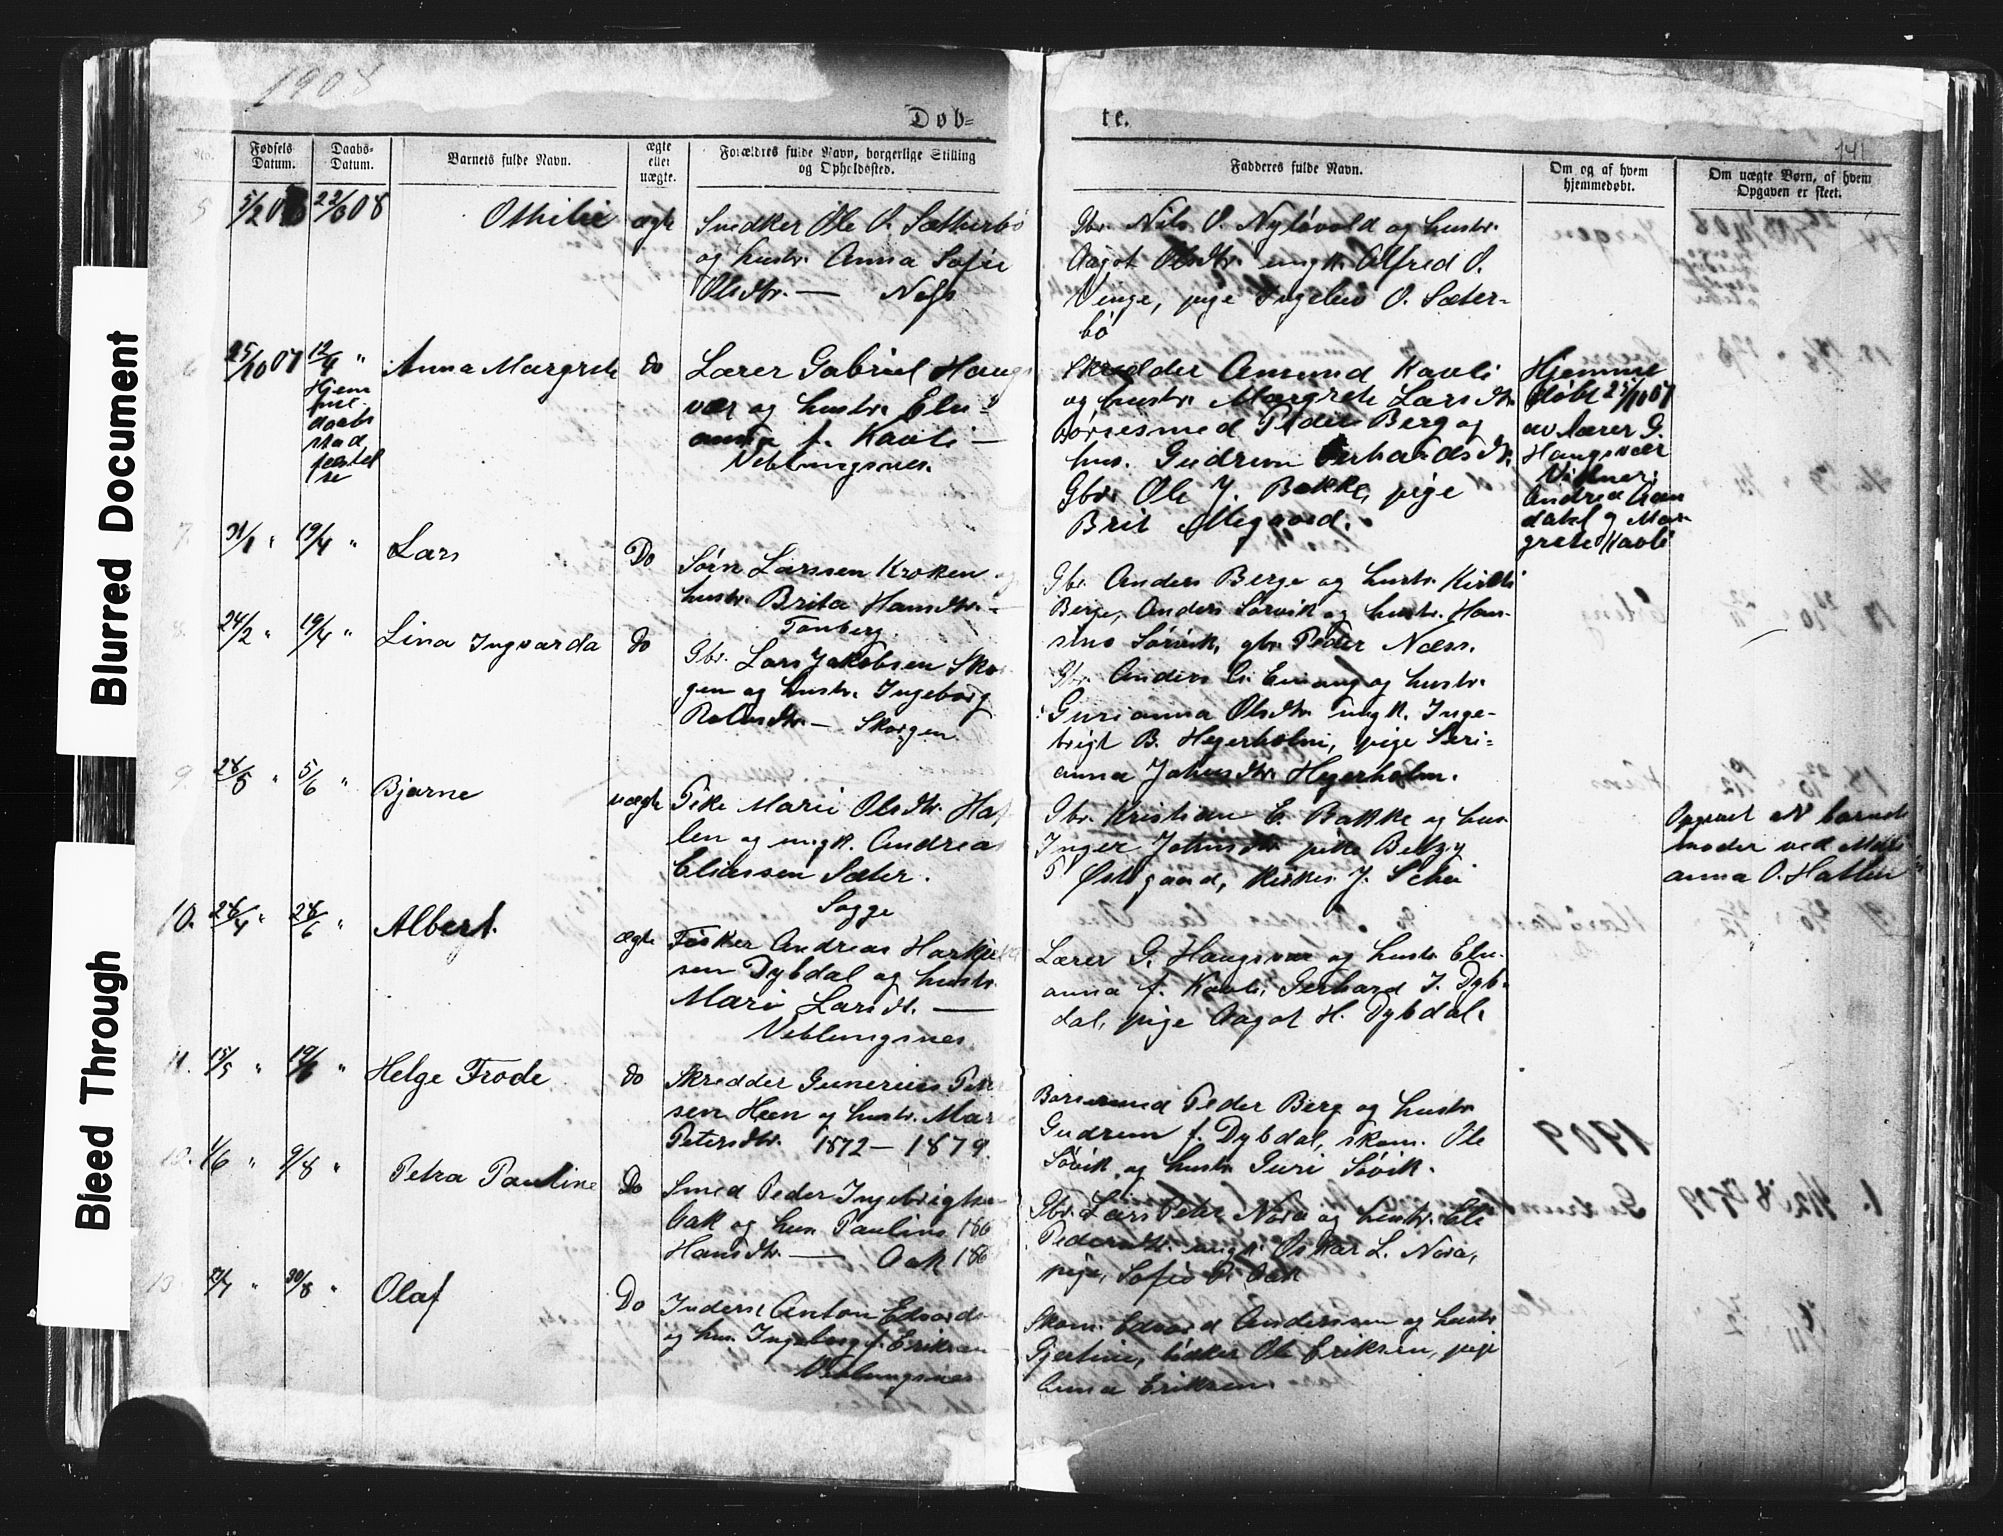 1908
Døb-
te.
141
No.
Fødsels Datum.
Daabs-Datum.
Barnets fulde Navn.
ægte eller uægte.
Forældres fulde Navn, borgerlige Stilling og Opholdssted.
Fadderes fulde Navn.
Om og af hvem hjemmedøbt.
Om uægte Børn, af hvem Opgaven er skeet.
5 5/2 08 22/3 08 Othilie ægte
Snedker Ole O. Sætherbø
og hustr. Anna Sofie
Olsdtr. — Nes
Gbr. Nils O. Nyløvold og hustr.
Aagot Olsdtr. ungk. Alfred O.
Venge, pige Ingeleiv O. Sæter-
bø
6 25/10 07 12/4 " Anna Margrete do
Hjem
me
daabs
stad
fæstel
se
Lærer Gabriel Haugs
vær og hustr. Elu-
anna f. Kavli —
Veblungsnes.
Skrædder Amund Kavli
og hustr. Margrete Larsdtr.
Børsesmed Peder Berg og
hus. Gudrun Gerhardsdtr.
Gbr. Ole J. Bakke, pige
Brit Megaard.
Hjemme
døbt 25/10 07
av lærer G.
Haugsvær
Vidner:
Andrea
dahl og Mar
grete Kavli
7. 31/1 " 19/4 " Lars Do
Søren Larssen Kroken og
hustr. Brita Hansdtr. —
Tonberg
Gbr. Anders Berge og hustr. Kirsti
Berge, Anders Sørvik og hustr. Han-
sine Sørvik, gbr. Peder Næss.
8. 24/2 " 19/4 " Lina Ingvarda do
Gbr. Lars Jakobsen Skor
gen og hustr. Ingeborg
— Skorgen.
Gbr. Anders G. Emang og hustr.
Gurianna Olsdtr. ungk. Inge-
brigt B. Hejerholm, pige Seri-
anna Johnsdtr. Hejerholm.
9. 28/5 " 5/6 " Bjarne uægte
Pike Marie Olsdtr. Hat
len og ungk. Andreas
Eliassen Sæter.
Sogge
Gbr. Kristian E. Bakke og hus
Inger Johnsdtr. pike Betzy
P. Østigaard, J. Schei
Opgivet av barnets
moder ved Mari
anna O. Hatlen
10. 28/4 " 28/6 " Albert. ægte
Fisker Andreas
sen Dybdal og hustr.
Mari Larsdt. —
Veblungsnes
Lærer G. Haugsvær og hustr. Elu-
anna f. Kavli, Gerhard I. Dyb-
dal, pige Aagot H. Dybdal.
11. 15/5 " 19/6 " Helge Frode do
Skredder Gunerius Peter
sen Heen og hustr. Marie
Petersdtr. 1872 — 1879.
Børsesmed Peder Berg og hustr
Gudrun f. Dybdal, skom. Ole
Søvik og hustr Guri Søvik.
12. 4/6 " 9/8 " Petra Pauline Do
Smed Peder Ingebrigtsen
Aak og hus Pauline 186
Hansdtr. — Aak 186
Gbr. Lars Peter Nora og hustr. Ele
Pedersdt. ungk. Oskar L. Nora,
pige, Sofie P. Aak
13 21/7 " 30/8 " Olaf Do
Inders. Anton Edvards
og hus. Ingeborg f. Eriksen
Veblungsnes
Skom. Edvard Anderssen og hustr
Gjertine, Ole Eriksen, pige
Anna Eriksen.
1909
Blurred Document
Bleed Through